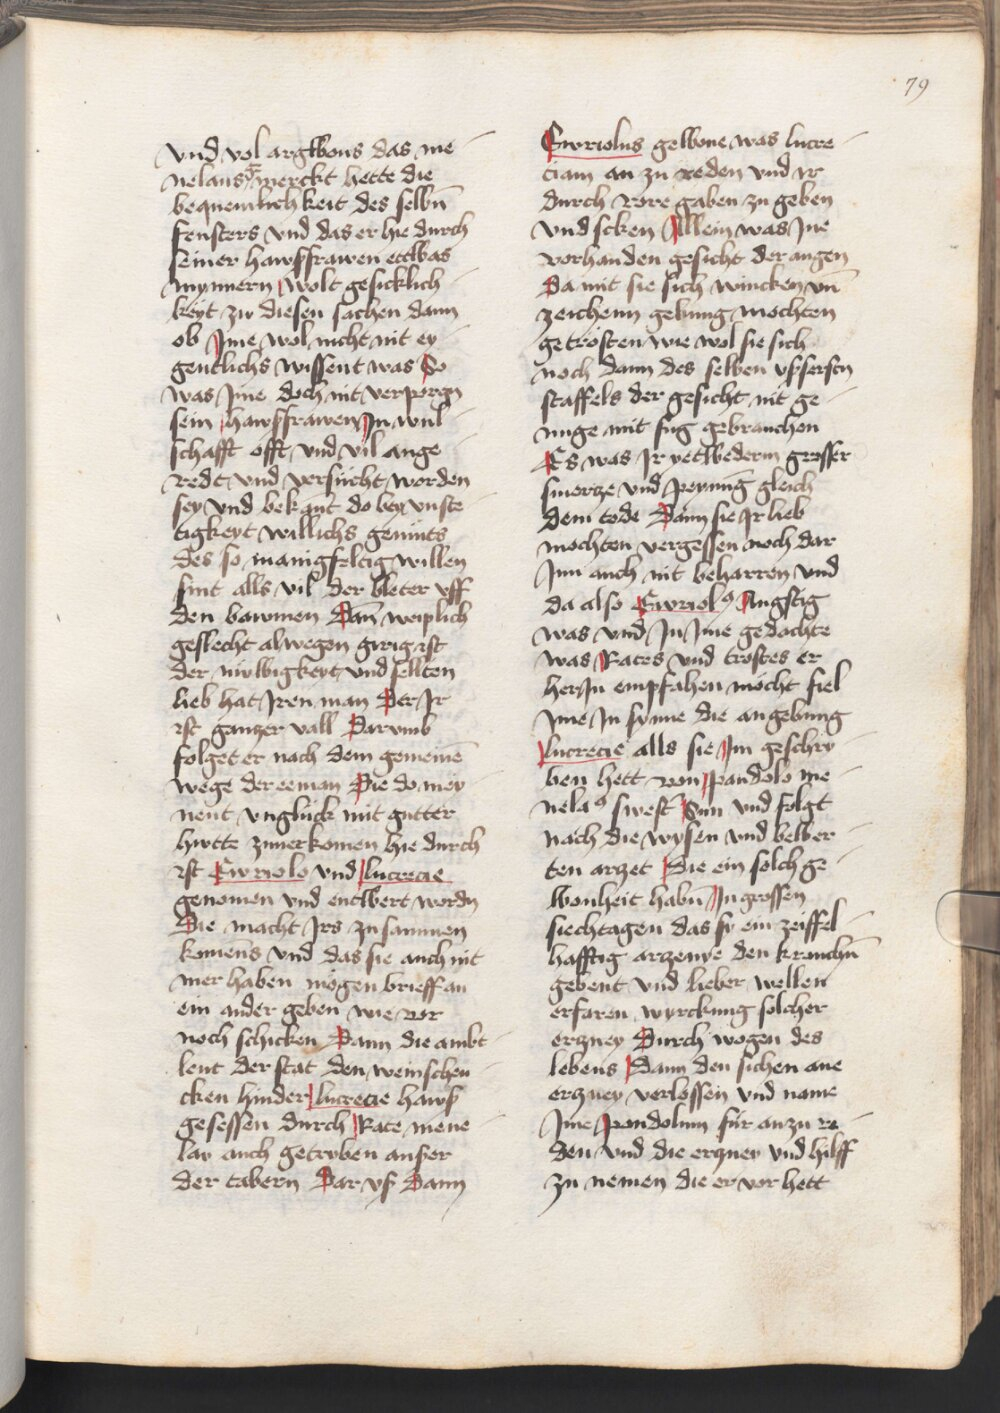 79
vnd vol argkwons das me
nelaus gemerckt hette die
bequemlichkeit des selbn̄
fensters vnd das er hie durch
seiner hawsfrawen ettwas
mynnern wolt gesicklich
keyt zu diesen sachen dann
ob Jme wol nicht nit ey
gentlichs wissent was So
was Jme doch nit verporgn
sein hawsfrawen Jn wul
schafft offt vnd vil ange
redt vnd versucht worden
sey vnd bekant do bey vnste
tigkeyt willichs gemuts
des so manigfeltig willen
sint alls vil der bleter vff
den bawmen Dan̄ weiplich
geslecht alwegen girig ist
der niwikeyt vnd sellten
lieb hat Jren man Der Jr
ist ganzer vall Darumb
folget er nach dem gemeinē
wege der eeman Die do mey
nent vnglück mit gutter
hutte zuuerkomen hie durch
ist Ewriolo vnd lucrecie
genomen vnd entwert wordn
Die macht Jrs zusammen
komens vnd das sie auch nit
mer haben mögen brieff an
ein ander geben wie vor
noch schicken Dann die ambt
leut der stat den weinschen
cken hinder lucrecie haws
gesessen durch Rate mene
lay auch getryben auser
der tabern Dar vs Dann
Ewriolus gewone was lucre
ciam an zu reden vnd ir
durch rore gaben zu geben
vnd scken Allein was Jne
vorhanden gesicht der augen
Da mit sie sich wincken vn̄
zeichenn gebung mochten
getrösten wie wol sie sich
noch dann des selben vssersten
staffels der gesicht nit ge
nuge mit fug gebrauchen
Es was Jr yetwederm grosser
smertze vnd peynung gleich
dem tode Dann sie Jr lieb
mochten vergessen noch dar
Jnn auch nit beharren vnd
da also Ewriolꝰ Angstig
was vnd Jn Jme gedachte
was Rates vnd trostes er
herJn empfahen möcht fiel
Jme Jn synne die angebung
lucrecie alls sie Jm geschry
ben hett von pandolo me
nelaꝰ swest Sun vnd folgt
nach die wysen vnd bewer
ten artzet Die ein solch ge
wonheit habn̄ Jn grossen
siechtagen das sy ein zeiffel
hafftig artzenye den kranckn̄
gebent vnd lieber wellen
erfaren wyrckung solcher
ertzney Durch wogen des
lebens Dann den sichen ane
ertzney verlossen vnd name
Jme pandolum für an zu re
den vnd die ertzney vnd hilff
zu nemen die er vor hett